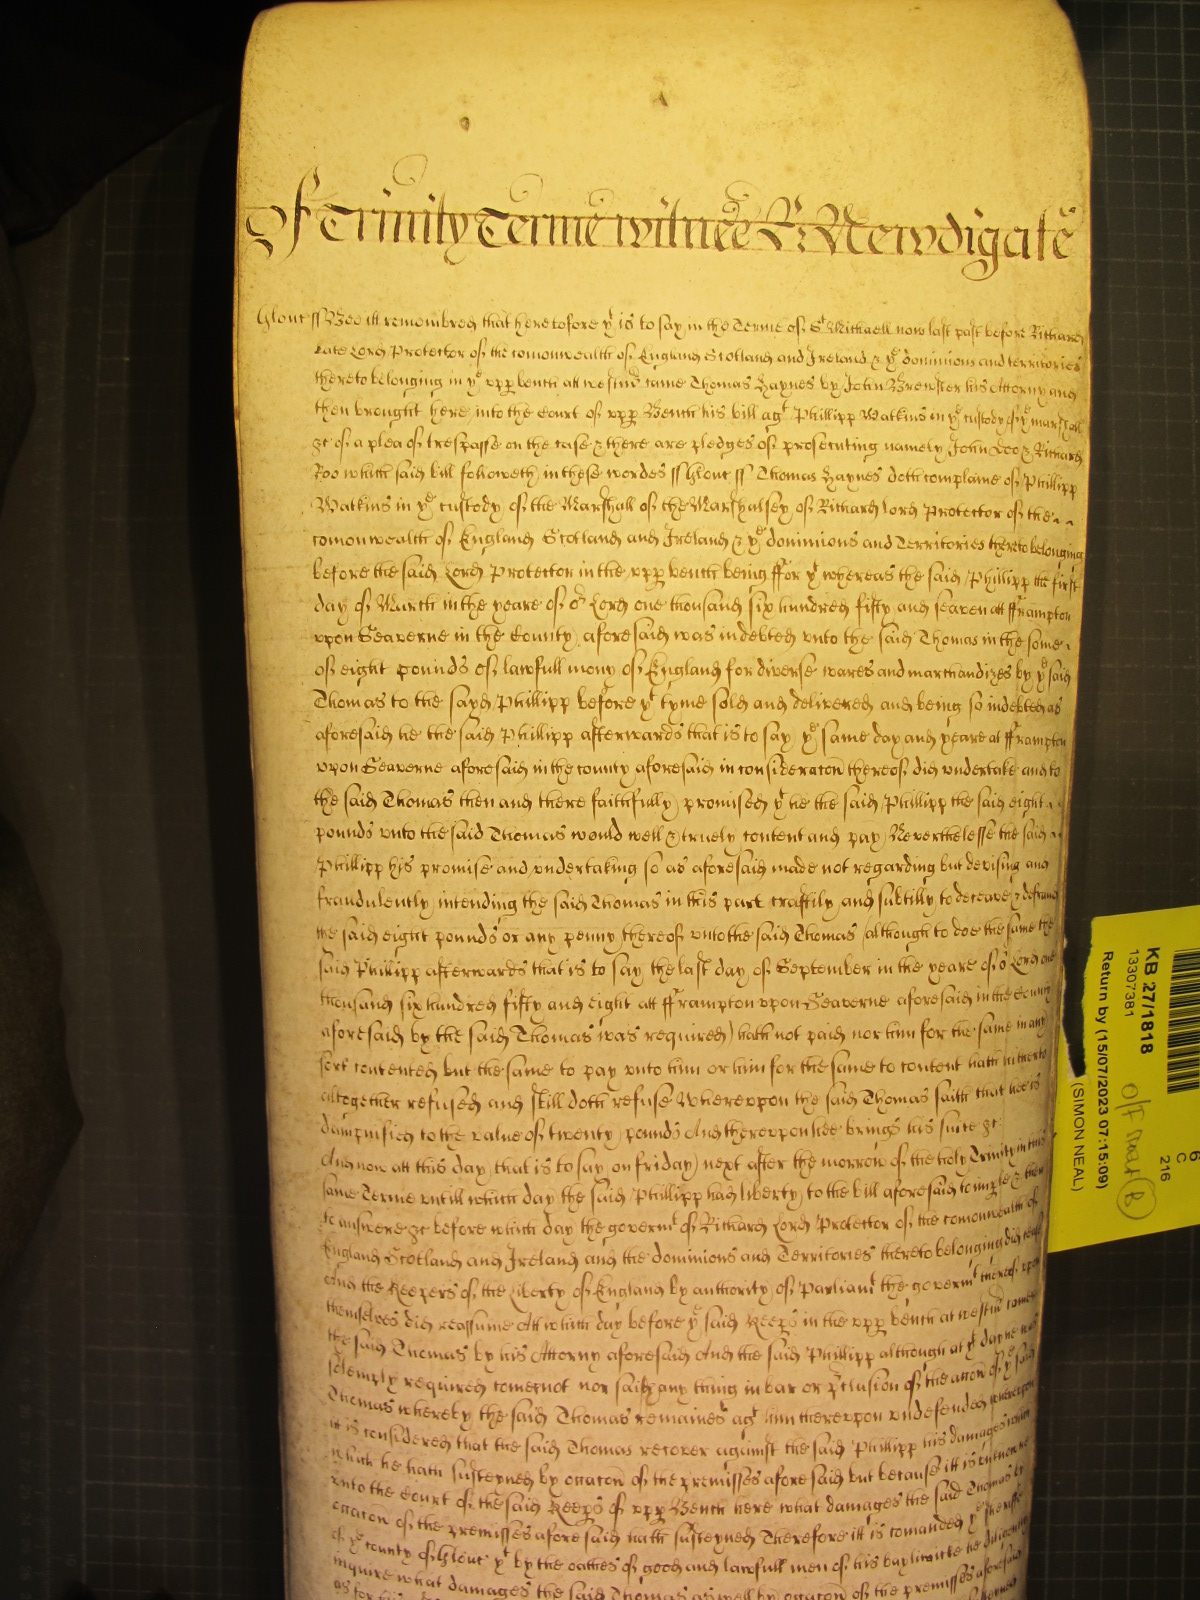 Of Trinity Terme witnes R: Newdigate
Glouc ss Bee itt remembred that heretofore yt is to say in the Terme of St Michaell now last past before Richard
Late Lord Protector of the comonwealth of England Scotland and Ireland & ye dominions and territories
thereto belonging in ye upp bench att westmr came Thomas Haynes by John Brewster his Attorny and
then brought here into the Court of upp Bench his bill agt Phillipp Watkins in ye custody of ye marshall
&c of a plea of trespasse on the case & there are pledges of prosecuting namely John Doo & Richard
Roo which said bill followeth in these wordes ss Glouc ss Thomas Haynes doth complaine of Phillipp
Watkins in ye custody of the Marshall of the Marshalsey of Richard lord Protector of the
comonwealth of England Scotland and Ireland & ye dominions and Territories thereto belonging
before the said Lord Protector in the upp bench being ffor yt whereas the said Phillipp the first
day of March in the yeare of or Lord one thousand six hundred fifty and seaven att fframpton
upon Seaverne in the County aforesaid was indebted unto the said Thomas in the some
of eight pounds of lawfull mony of England for diverse wares and marchandizes by ye said
Thomas to the sayd Phillipp before yt tyme sold and delivered and being so indebted as
aforesaid he the said Phillipp afterwards that is to say ye same day and yeare at fframpton
upon Seaverne aforesaid in the county aforesaid in consideracon thereof did undertake and to
the said Thomas then and there faithfully promised yt he the said Phillipp the said eight
pounds unto the said Thomas would well & truely content and pay Neverthelesse the said
Phillipp his promise and undertaking so as aforesaid made not regarding but devising and
fraudulently intending the said Thomas in this part craftily and subtilly to deceave & defraud
the said eight pounds or any penny thereof unto the said Thomas (although to doe the same the
said Phillipp afterwards that is to say the last day of September in the yeare of or Lord one
thousand six hundred fifty and eight att fframpton upon Seaverne aforesaid in the County
aforesaid by the said Thomas was required) hath not paid nor him for the same in any
sort contented but the same to pay unto him or him for the same to content hath hitherto
altogether refused and still doth refuse Whereupon the said Thomas saith that hee is
dampnified to the value of twenty pounds And thereupon hee brings his suite &c
And now att this day that is to say on friday next after the morrow of the holy Trinity in this
same Terme untill which day the said Phillipp had liberty to the bill aforesaid to imple & then
to answere &c before which day the governmt of Richard Lord Protector of the comonwealth of
England Scotland and Ireland and the dominions and Territories thereto belonging did
And the Keepers of the Liberty of England by authority of Parliamt the governmt thereof upon
themselves did reassume Att which day before ye said Keeps in the upp bench at westmr comes
the said Thomas by his Attorny aforesaid And the said Phillipp although at yt day he was
solemply required comes not nor saith any thing in bar or pclusion of the accon of ye said
Thomas whereby the said Thomas remaines agt him thereupon undefended whereupon
it is considered that the said Thomas recover against the said Phillipp his damages
which he hath susteyned by occacon of the premisses aforesaid but because itt is unknowne
unto the Court of the said Keeps of upp Bench here what damages the said Thomas by
occacon of the premisses aforesaid hath susteyned Therefore itt is comanded ye sheriffe
of ye county of Glouc yt by the oathes of good and lawfull men of his bayliwicke he diligently
inquire what damages the said Thomas as well by occacon of the premisses aforesaid
as for his
KB 27/1818
13307381
Return by (15/07/2023 07:15:09)
(SIMON NEAL)
6
C
216